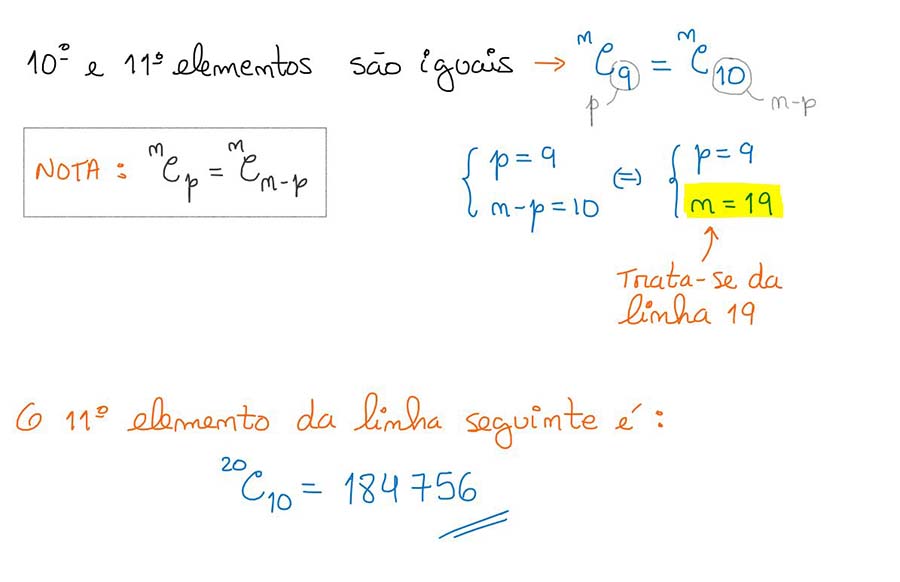 10º e 11º elementos são iguais → ⁿC₉ = ⁿC₁₀
p
n-p
NOTA : ⁿCp = ⁿCn-p
{ p = 9
n-p = 10
(=)
{ p = 9
n = 19
Trata-se da
linha 19
O 11º elemento da linha seguinte é :
²⁰C₁₀ = 184 756